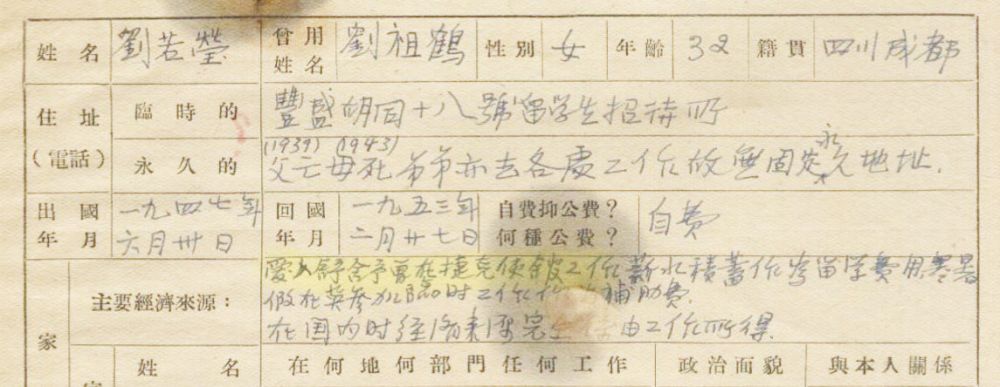 姓名 劉若瑩 曾用姓名 劉祖鶴 性別 女 年齡 32 籍貫 四川成都
住址(電話) 臨時的 豐盛胡同十八號留學生招待所
永久的 父亡(1939)母死(1943)弟弟亦去各處工作故無固定永久地址.
出國年月 一九四七年六月卅日 回國年月 一九五三年二月廿七日 自費抑公費?何種公費? 自費
家
主要經濟來源:
愛人舒令予曾在捷克使館工作薪水積蓄作為留学費用寒暑
假在英參加临时工作 補助費.
在国内时经济来源完 由工作所得
姓名 在何地何部門任何工作 政治面貌 與本人關係